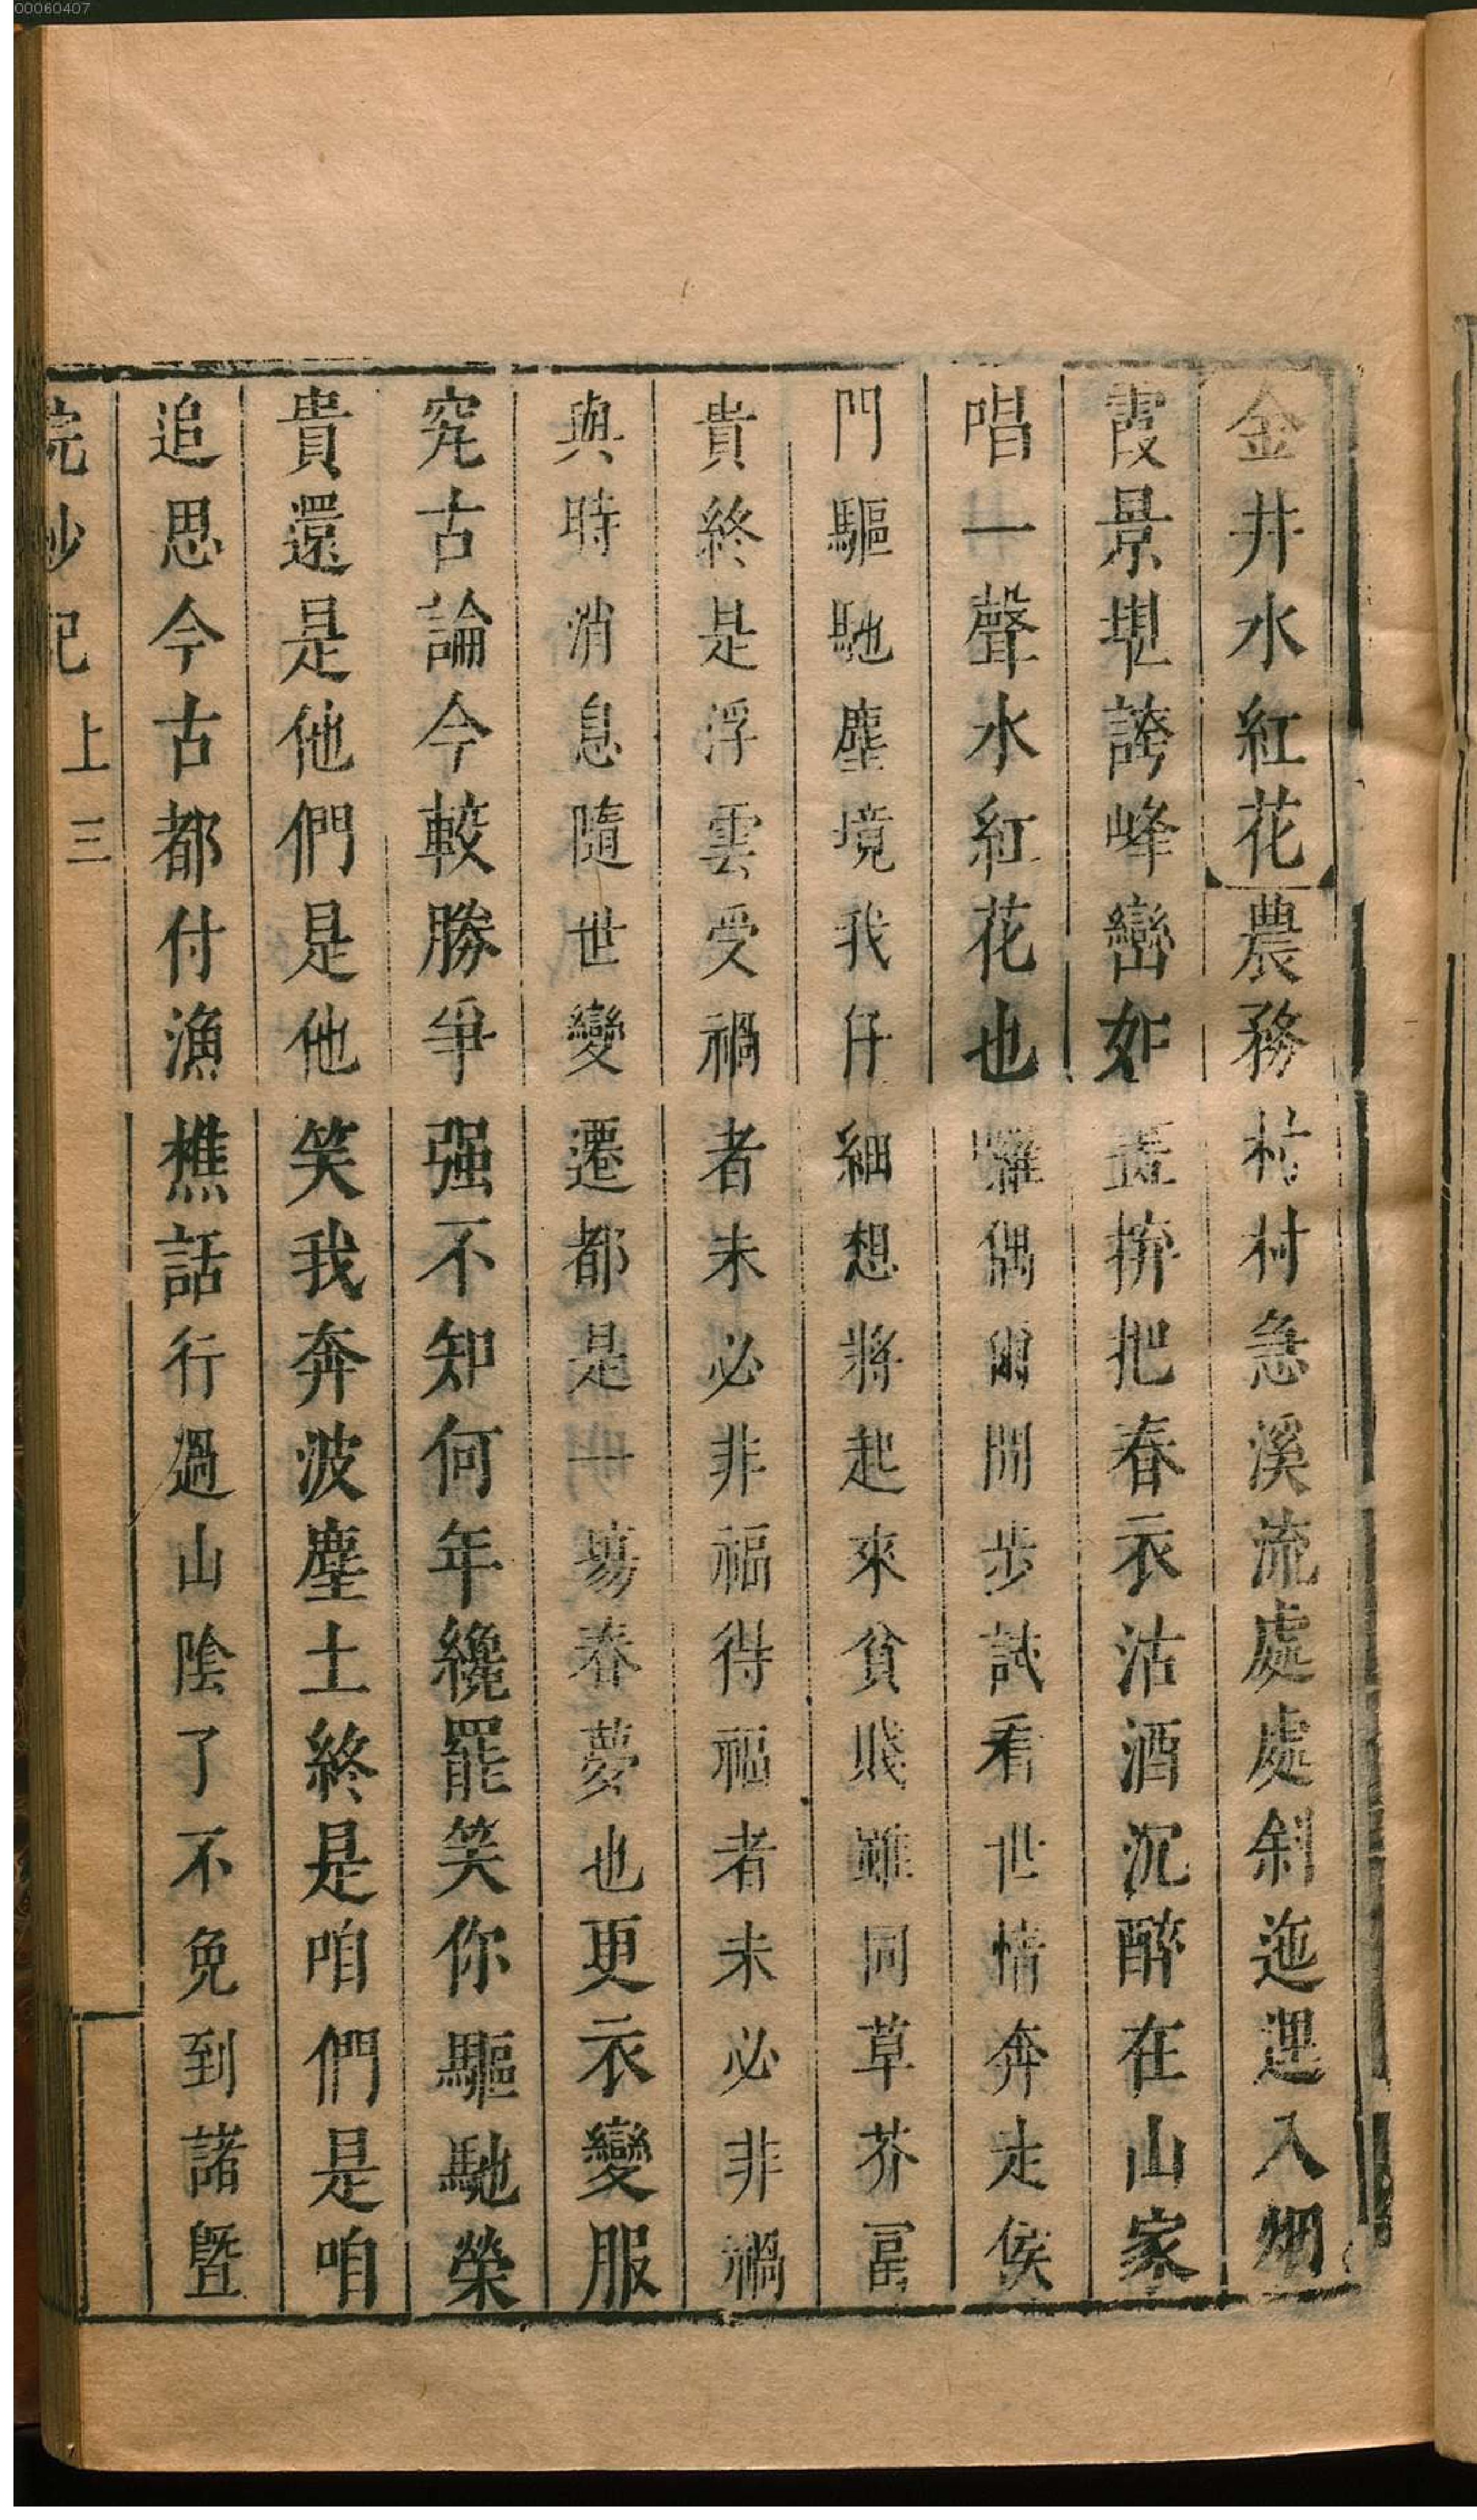 00060407
金井水紅花農務村村急溪流處處斜迤邐入烟
霞景堪誇峰巒如畫拚把春衣沽酒沉醉在山家
唱一聲水紅花也囉偶爾閒步試看世情奔走侯
門驅馳塵境我仔細想將起來貧賤雖同草芥冨
貴終是浮雲受禍者未必非福得福者未必非禍
與時消息隨世變遷都是一塲春夢也更衣變服
究古論今較勝爭强不知何年纔罷笑你驅馳榮
貴還是他們是他笑我奔波塵土終是咱們是咱
追思今古都付漁樵話行過山陰了不免到諸曁
浣紗記 上 三